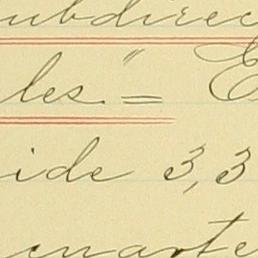 ubdirec
les." = E
ide 3,3
cuarte